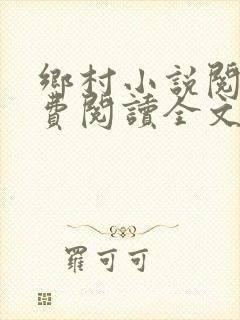 鄉村小說閱
費閱讀全文
羅可可